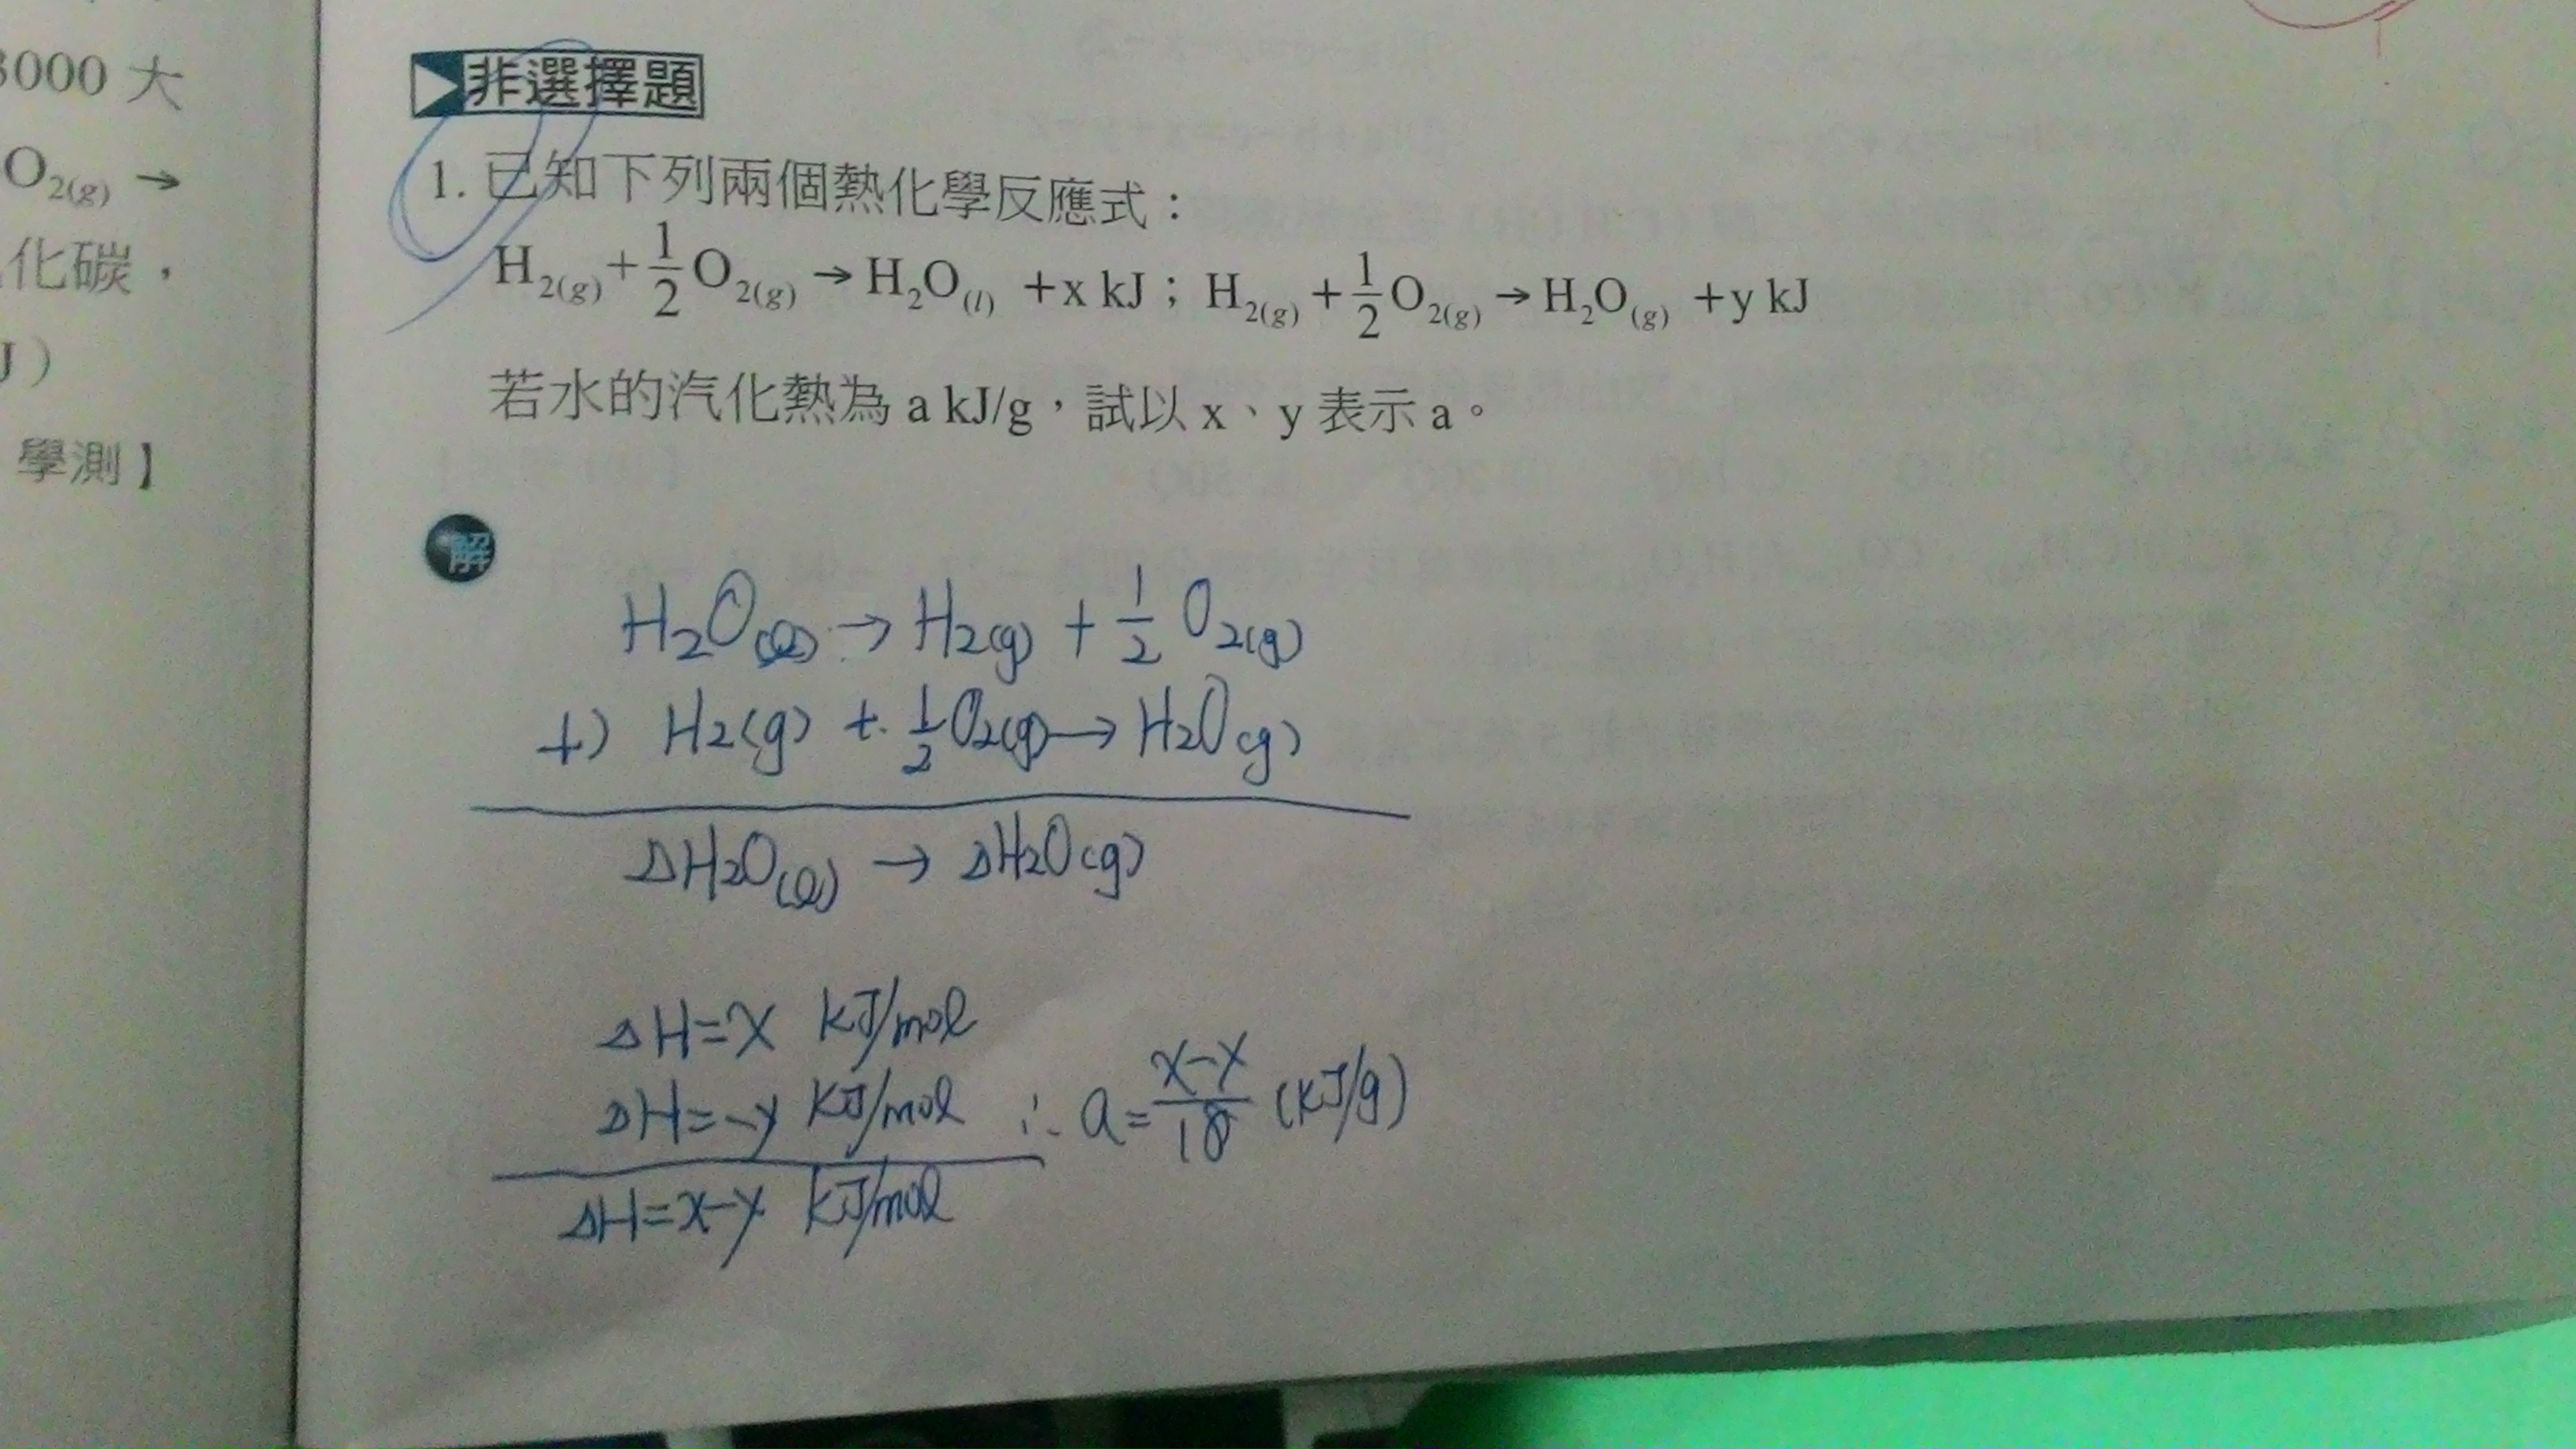 3000 大
O2(g) →
化碳，
J）
學測】
非選擇題
1. 已知下列兩個熱化學反應式：
H2(g)+1/2 O2(g) → H2O(l) +x kJ；H2(g)+1/2 O2(g) → H2O(g) +y kJ
若水的汽化熱為 a kJ/g，試以 x、y 表示 a。
解
H2O(l) → H2(g) + 1/2 O2(g)
+) H2(g) + 1/2 O2(g) → H2O(g)
ΔH2O(l) → ΔH2O(g)
ΔH=x kJ/mol
ΔH=-y kJ/mol ∴ a= x-y/18 (kJ/g)
ΔH=x-y kJ/mol